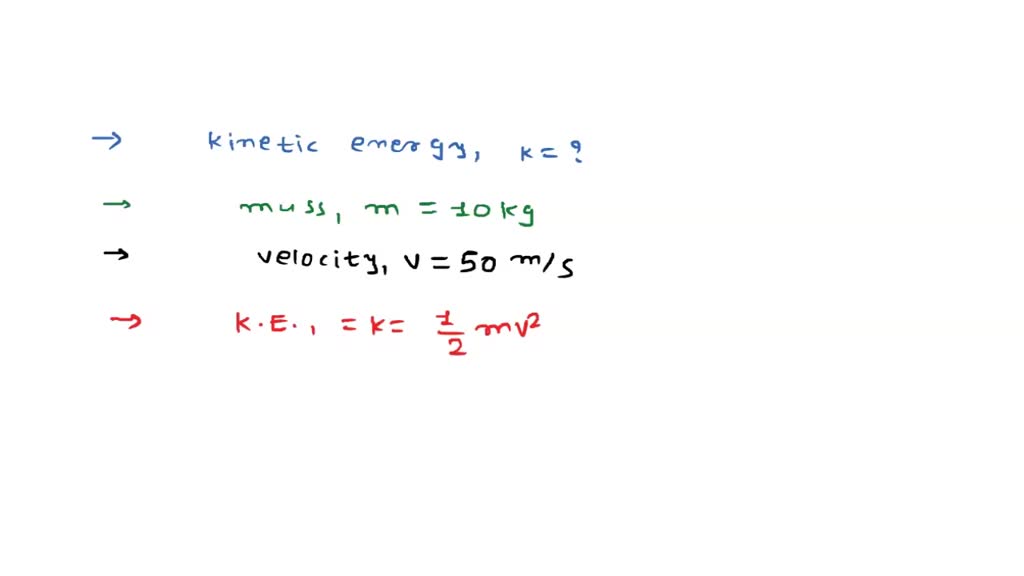 → kinetic energy, k = ?
→ muss, m = 10 kg
→ velocity, v = 50 m/s
→ K.E., = K = 1/2 mv²